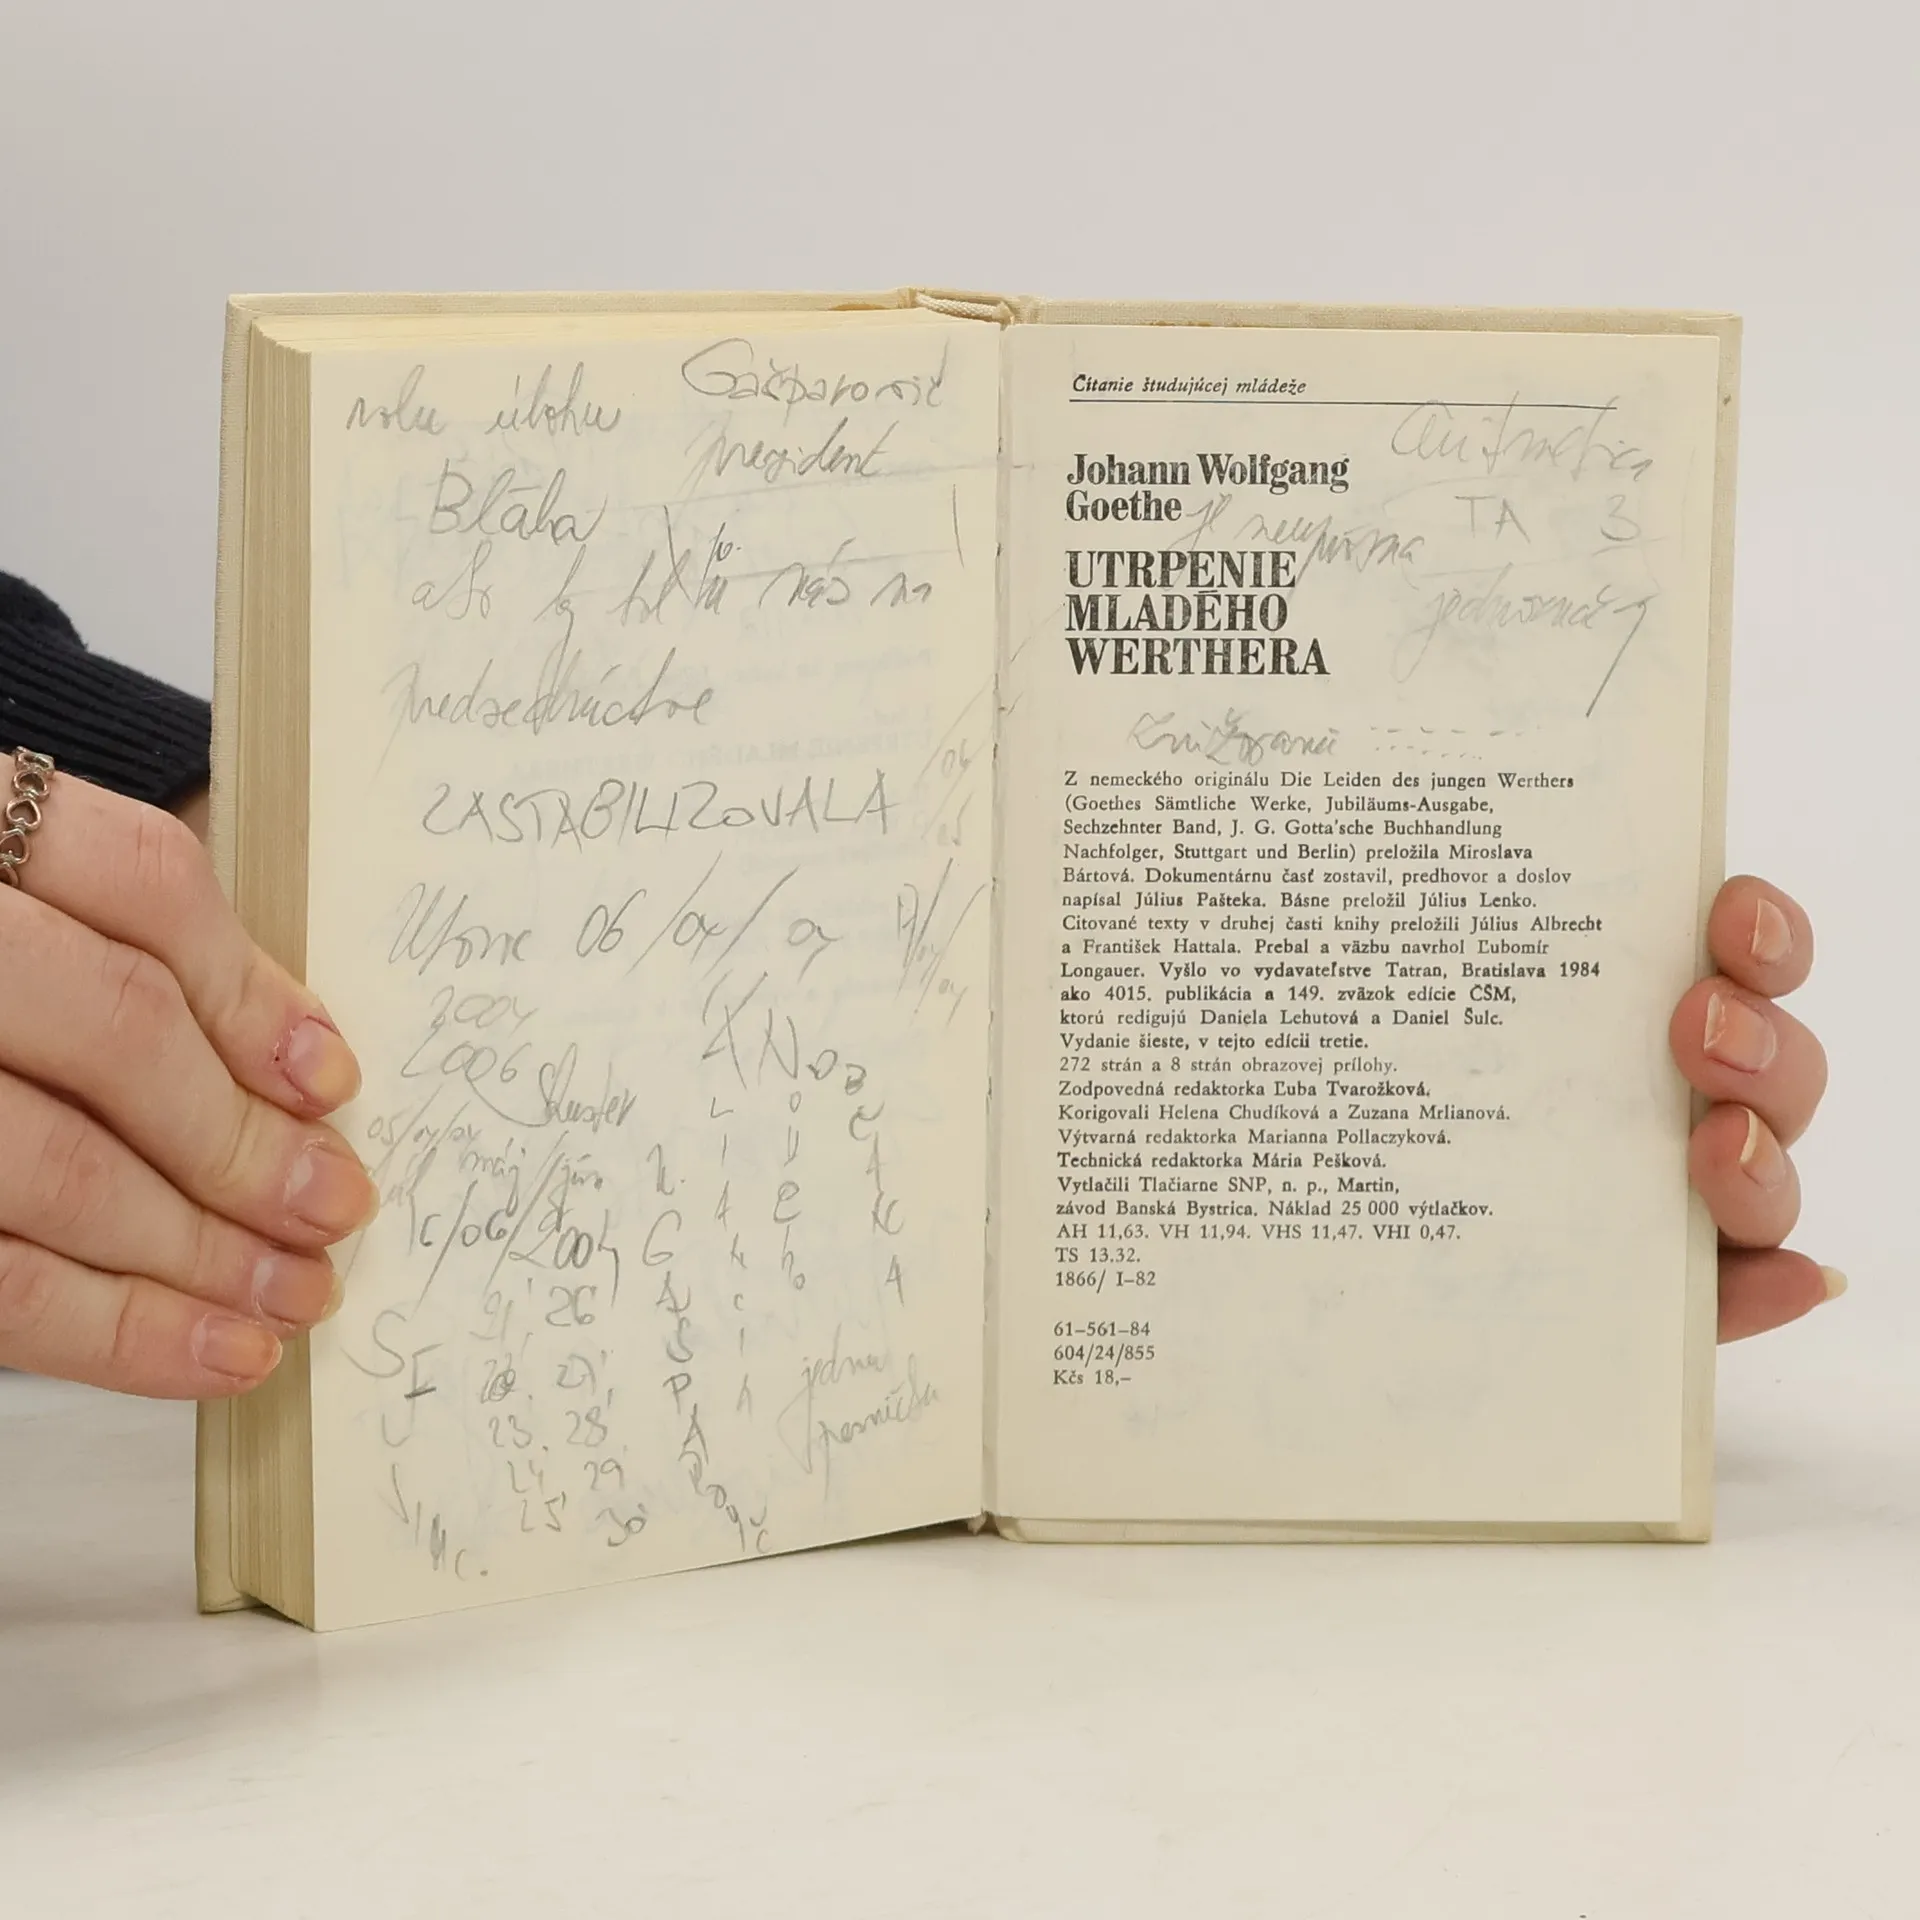 Gašparovič
rolu úlohu
prezident
Blaha
predsedníctve
ZASTABILIZOVALA
06
Utorok 06/04/04
2004
2006 Shuster
05/04/04
máj/jún
16/06/2004
21, 26
27,
23. 28
24 29
25 30
A
L
I
A
N
C
I
A
N.
G
A
Š
P
A
R
O
V
I
Č
jednu
pesničku
Čítanie študujúcej mládeže
Johann Wolfgang
Goethe
TA 3
je
UTRPENIE
MLADÉHO
WERTHERA
Z nemeckého originálu Die Leiden des jungen Werthers
(Goethes Sämtliche Werke, Jubiläums-Ausgabe,
Sechzehnter Band, J. G. Gotta'sche Buchhandlung
Nachfolger, Stuttgart und Berlin) preložila Miroslava
Bártová. Dokumentárnu časť zostavil, predhovor a doslov
napísal Július Pašteka. Básne preložil Július Lenko.
Citované texty v druhej časti knihy preložili Július Albrecht
a František Hattala. Prebal a väzbu navrhol Ľubomír
Longauer. Vyšlo vo vydavateľstve Tatran, Bratislava 1984
ako 4015. publikácia a 149. zväzok edície ČŠM,
ktorú redigujú Daniela Lehutová a Daniel Šulc.
Vydanie šieste, v tejto edícii tretie.
272 strán a 8 strán obrazovej prílohy.
Zodpovedná redaktorka Ľuba Tvarožková.
Korigovali Helena Chudíková a Zuzana Mrlianová.
Výtvarná redaktorka Marianna Pollaczyková.
Technická redaktorka Mária Pešková.
Vytlačili Tlačiarne SNP, n. p., Martin,
závod Banská Bystrica. Náklad 25 000 výtlačkov.
AH 11,63. VH 11,94. VHS 11,47. VHI 0,47.
TS 13.32.
1866/ I-82
61–561–84
604/24/855
Kčs 18,–